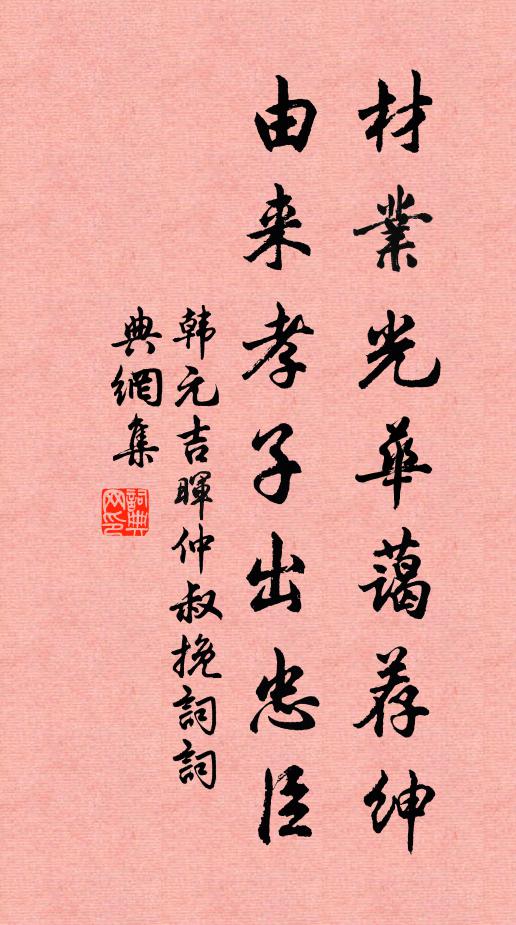 材業光華藹荐紳
由来孝子出忠臣
韩元吉暉仲叔挽詞詞
典網集
詞典網印